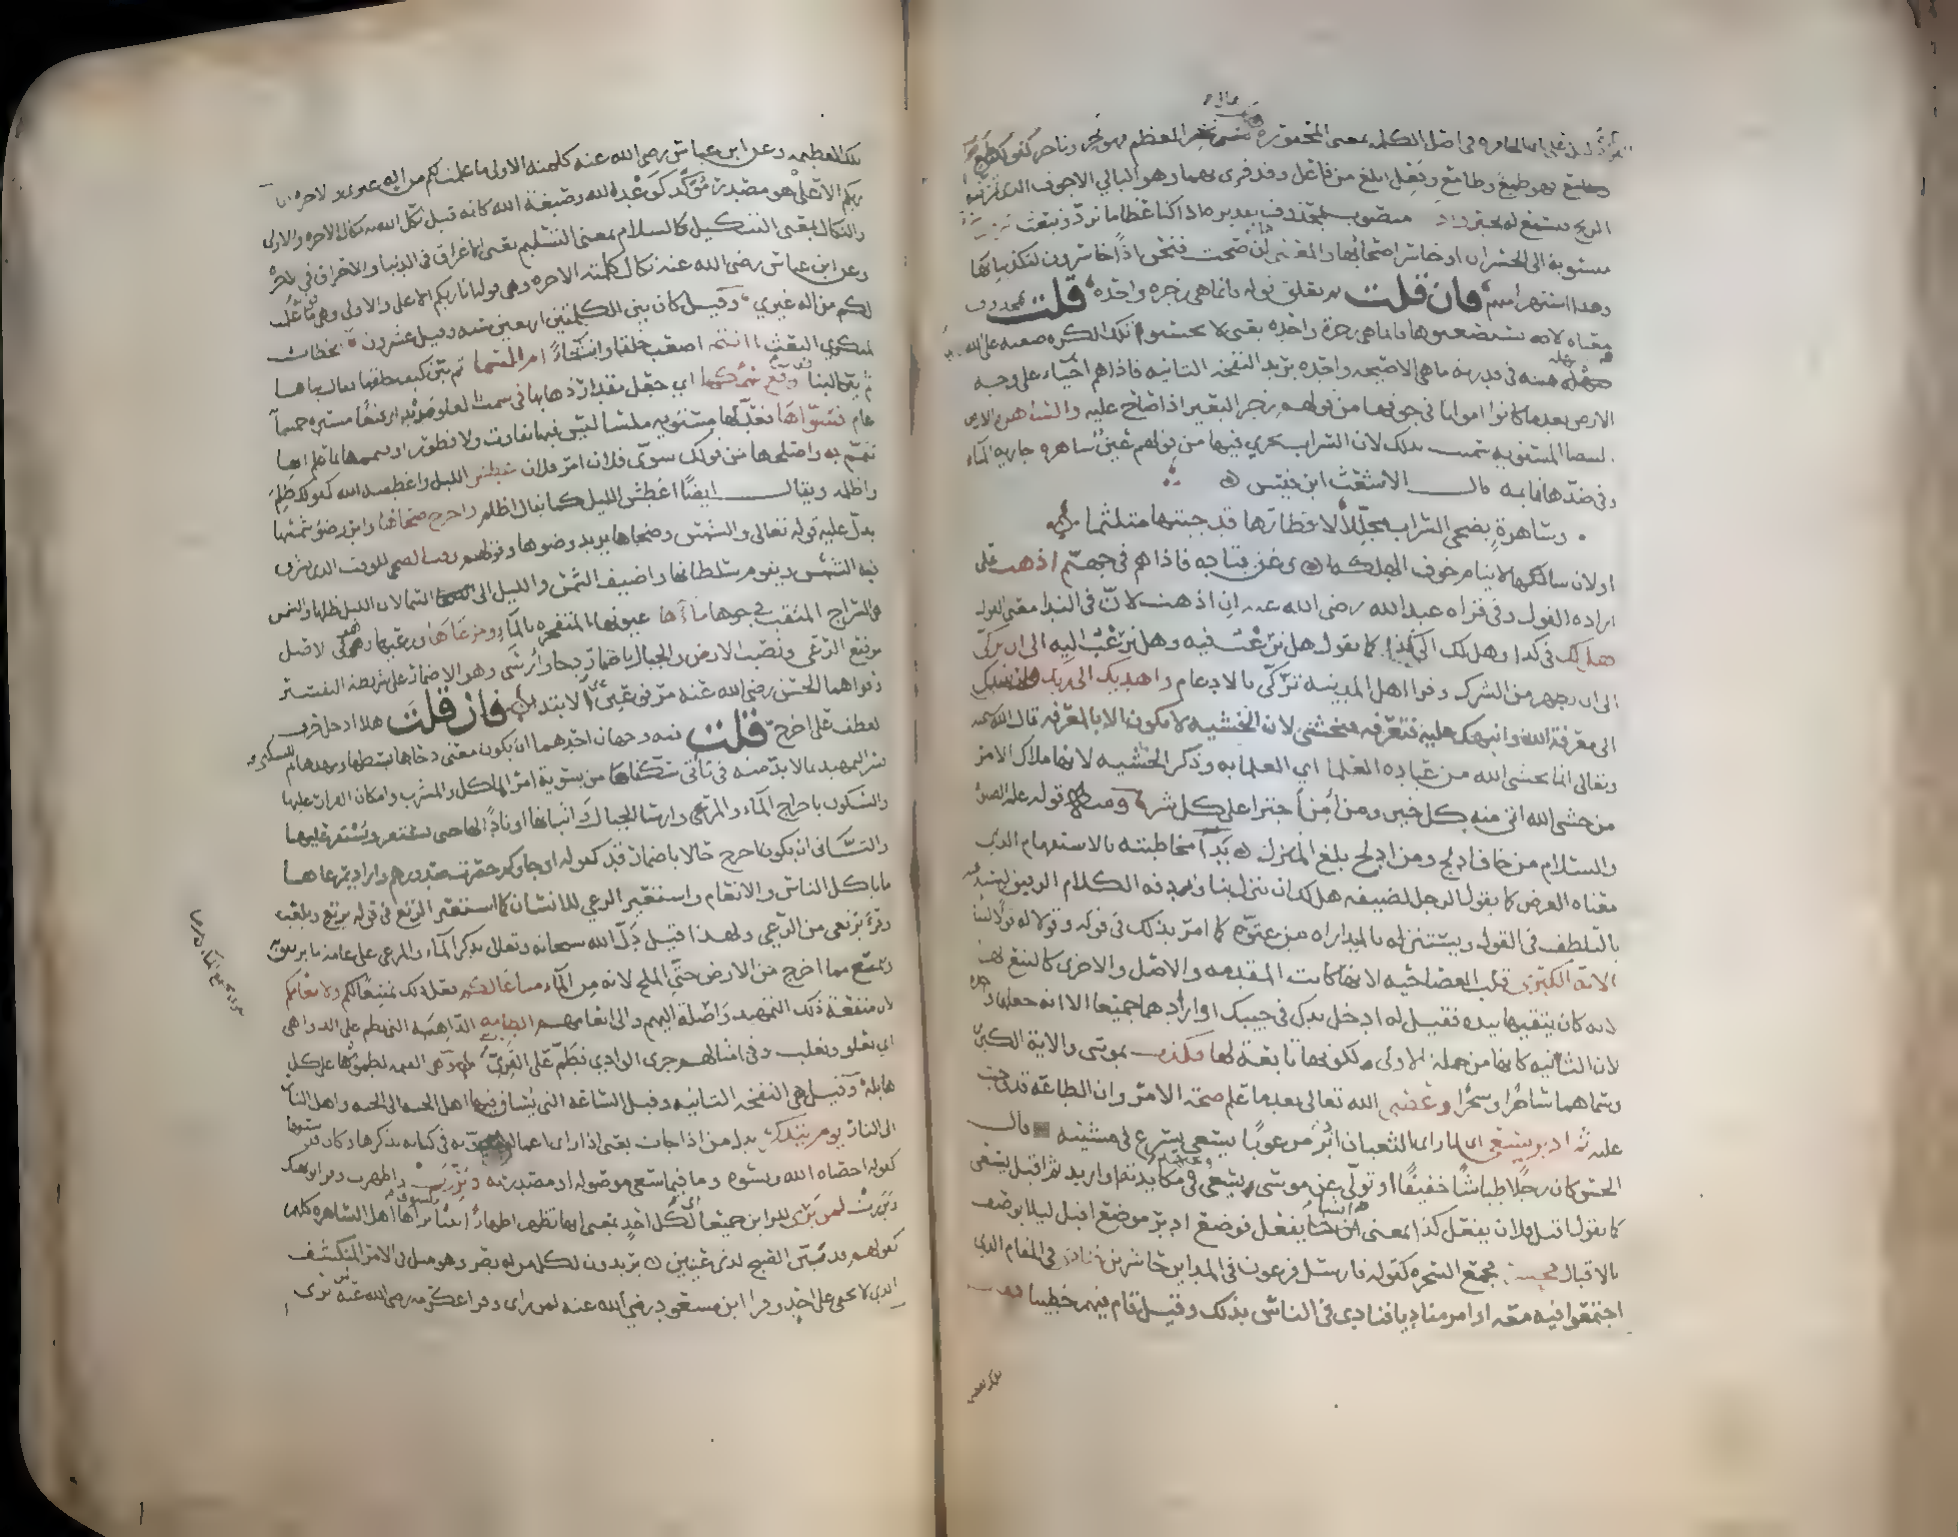 دليل على ان الحافره في اصل الكلمه بمعنى المحفوره نخر العظم فهو نخر وناخر كقولك طمع
فهو طمع وطامع وفعل ابلغ من فاعل وقد قرى بهما وهو البالي الاجوف الذي تمر فيه
الريح فيسمع له نخير واذا منصوب بمحذوف تقديره ااذا كنا عظاما نرد ونبعث
منسوبة الى الخسران او خاسر اصحابها والمعنى انها ان صحت فنحن اذا خاسرون لتكذيبنا بها
وهذا استهزا منهم فان قلت بم تعلق قوله فانما هي زجرة واحده قلت بمحذوف
معناه لا تستصعبوها فانما هي زجرة واحده يعني لا تحسبوا تلك الكره صعبه على الله
سهله هينه في قدرته ما هي الا صيحه واحده يريد النفخه الثانيه فاذا هم احياء على وجه
الارض بعد ما كانوا امواتا في جوفها من قولهم زجر البعير اذا صاح عليه والساهره الارض
البيضا المستويه سميت بذلك لان السراب يجري فيها من قولهم عين ساهره جاريه الماء
وفي ضدها نايمه قال الاشعث ابن قيس
وساهرة يضحى السراب مجللا لاقطارها قد جبتها متلثما
او لان سالكها لا ينام خوف الهلكه وعن قتاده فاذا هم في جهنم اذهب على
اراده القول وفي قراه عبد الله رضي الله عنه ان اذهب لان في الندا معنى القول
هل لك في كذا وهل لك الى كذا كما يقول هل ترغب فيه وهل ترغب اليه الى ان تزكى
الى ان تطهر من الشرك وقرا اهل المدينه تزكى بالادغام واهديك الى ربك وارشدك
الى معرفة الله وانبهك عليه فتعرفه فتخشى لان الخشيه لا تكون الا بالمعرفه قال الله
وتعالى انما يخشى الله من عباده العلما اي العلما به وذكر الخشيه لانها ملاك الامر
من خشى الله اتى منه كل خير ومن امن اجترا على كل شر ومنه قوله عليه الصلاة
والسلام من خاف ادلج ومن ادلج بلغ المنزل بدا مخاطبته بالاستفهام الذي
معناه العرض كما يقول الرجل لضيفه هل لك ان تنزل بنا واردفه الكلام الرقيق ليستدعيه
بالتلطف في القول ويستنزله بالمداراه من عتوه كما امر بذلك في قوله وقولا له قولا لينا
الايه الكبرى قلب العصا حيه لانها كانت المقدمه والاصل والاخرى كالتبع لها
لانه كان يتقيها بيده فقيل له ادخل يدك في جيبك او ارادهما جميعا الا انه جعلهما واحده
لان الثانيه كانها من جملة الاولى لكونها تابعة لها فكذب بموسى والاية الكبرى
وسماهما ساحرا وسحرا وعصى الله تعالى بعد ما علم صحة الامر وان الطاعه قد وجبت
عليه ثم ادبر يسعى اي لما راى الثعبان ادبر مرعوبا يسعى يسرع في مشيته قال
الحسن كان رجلا طياشا خفيفا او تولى عن موسى يسعى في مكايدته او اريد ثم اقبل يسعى
كما يقول اقبل فلان يفعل كذا بمعنى انشا يفعل فوضع ادبر موضع اقبل ليلا يوصف
بالاقبال فحشر فجمع السحره كقوله فارسل فرعون في المداين حاشرين فنادى في المقام الذي
اجتمعوا فيه معه او امر مناديا فنادى في الناس بذلك وقيل قام فيهم خطيبا فقال
تلك العظيمه وعن ابن عباس رضي الله عنه كلمته الاولى ما علمت لكم من اله غيري والاخره انا
ربكم الاعلى هو مصدر مؤكد كوعد الله وصبغة الله كانه قيل نكل الله به نكال الاخره والاولى
والنكال بمعنى التنكيل كالسلام بمعنى التسليم يعني الاغراق في الدنيا والاحراق في الاخره
وعن ابن عباس رضي الله عنه نكال كلمتيه الاخره وهي قوله انا ربكم الاعلى والاولى وهي ما علمت
لكم من اله غيري وقيل كان بين الكلمتين اربعين سنه وقيل عشرون الخطاب
لمنكري البعث اانتم اصعب خلقا وانشاءً ام السما ثم بين كيف خلقها فقال بناها
ثم بين البنا رفع سمكها اي جعل مقدار ذهابها في سمت العلو مديدا رفيعا مسيره خمسمايه
عام فسواها فعدلها مستويه ملسا ليس فيها تفاوت ولا فطور او تممها بما علم انها
تتم به واصلحها من قولك سوى فلان امر فلان غطش الليل واغطشه الله كقولك ظلم
واظلمه ويقال ايضا اغطش الليل كما يقال اظلم واخرج ضحاها وابرز ضو شمسها
يدل عليه قوله تعالى والشمس وضحاها يريد وضوها وقولهم وقت الضحى للوقت الذي تشرق
فيه الشمس ويقوم سلطانها واضيف الشمس والليل الى السما لان الليل ظلها والشمس
هي السراج المثقب في جوها ماآها عيونها المتفجره بالماء ومرعاها ورعيها وهو في الاصل
موضع الرعي ونصب الارض والجبال باضمار دحا وارسى وهو الاضمار على شريطة التفسير
وقراهما الحسن رضي الله عنه مرفوعين على الابتدا فان قلت هلا ادخل حرف
العطف على اخرج قلت فيه وجهان احدهما ان يكون معنى دحاها بسطها ومهدها للسكنى ثم
فسر التمهيد بما لا بد منه في تاتي سكناها من تسوية امر الماكل والمشرب وامكان القرار عليها
والسكون باخراج الماء والمرعى وارسا الجبال واثباتها اوتادا لها حتى تستقر ويستقر عليها
والثاني ان يكون اخرج حالا باضمار قد كقوله او جاوكم حصرت صدورهم واراد بمرعاها
ما ياكل الناس والانعام واستعير الرعي للانسان كما استعير الرتع في قوله يرتع ويلعب
وقرئ نرتعي من الرعي ولهذا قيل دل الله سبحانه وتعالى بذكر الماء والمرعى على عامة ما يرتفق
ويتمتع مما اخرج من الارض حتى الملح لانه من الماء متاعا لكم فعل ذلك تمتيعا لكم ولانعامكم
لان منفعة ذلك التمهيد واصلة اليهم والى انعامهم الطامه الداهيه التي تطم على الدواهي
اي تعلو وتغلب وفي امثالهم جرى الوادي فطم على القري وهي القيمه لطمومها على كل
هايله وقيل هي النفخه الثانيه وقيل الساعه التي يساق فيها اهل الجنه الى الجنه واهل النار
الى النار يوم يتذكر بدل من اذا جات يعني اذا راى اعماله مدونه في كتابه تذكرها وكان قد نسيها
كقوله احصاه الله ونسوه وما في ما سعى موصوله او مصدريه وبرزت واظهرت وقرا ابو نهيك
وبرزت لمن يرى للراين جميعا اي لكل احد يعني انها تظهر اظهارا بينا مكشوفا يراها اهل الساهره كلهم
كقولهم قد بين الصبح لذي عينين يريدون لكل من له بصر وهو مثل في الامر المنكشف
الذي لا يخفى على احد وقرا ابن مسعود رضي الله عنه لمن راى وقرا عكرمه رضي الله عنه لمن ترى